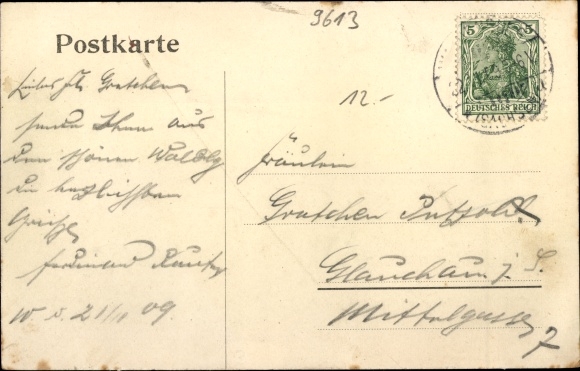 9613
Postkarte
12.-
5 5
DEUTSCHES REICH
Liebes Frl. Gretchen
sende Ihnen aus
dem schönen
die herzlichsten
Grüße
Ferdinand
W. d. 21/11 09.
Fräulein
Gretchen
Glauchau i. S.
Mittelgasse
7